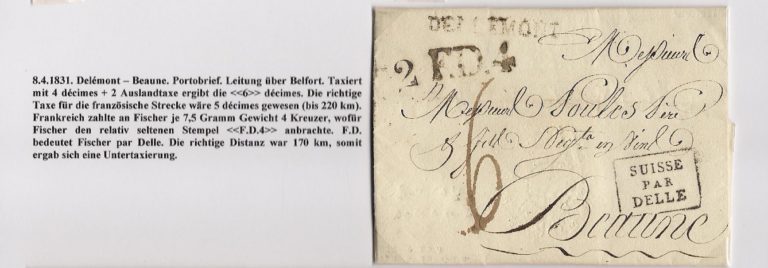 8.4.1831. Delémont – Beaune. Portobrief. Leitung über Belfort. Taxiert
mit 4 décimes + 2 Auslandtaxe ergibt die <<6>> décimes. Die richtige
Taxe für die französische Strecke wäre 5 décimes gewesen (bis 220 km).
Frankreich zahlte an Fischer je 7,5 Gramm Gewicht 4 Kreuzer, wofür
Fischer den relativ seltenen Stempel <<F.D.4>> anbrachte. F.D.
bedeutet Fischer par Delle. Die richtige Distanz war 170 km, somit
ergab sich eine Untertaxierung.
DELEMONT
2 F.D.4
Messieurs
Messieurs Poulet Père
& fils
6
SUISSE
PAR
DELLE
Beaune